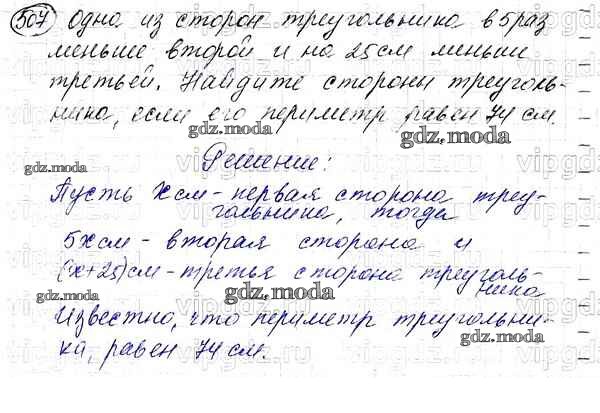 507 Одна из сторон треугольника в 5 раз
меньше второй и на 25 см меньше
третьей. Найдите стороны треуголь-
ника, если его периметр равен 74 см.
gdz.moda
gdz.moda
gdz.moda
Решение:
gdz.moda
Пусть x см - первая сторона треу-
гольника, тогда
5x см - вторая сторона и
(x+25) см - третья сторона треуголь-
ника
gdz.moda
gdz.moda
Известно, что периметр треугольни-
ка, равен 74 см.
gdz.moda
gdz.moda